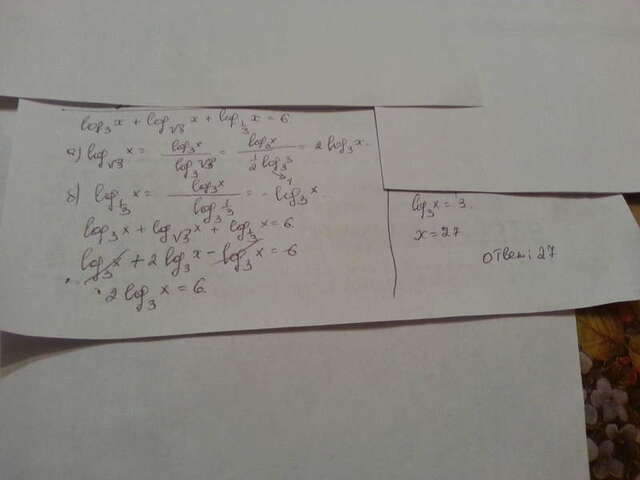 log₃x + log_√3 x + log_1/3 x = 6
а) log_√3 x = log₃x / log₃√3 = log₃x / ½ log₃3 = 2 log₃x.
б) log_1/3 x = log₃x / log₃ 1/3 = - log₃x.
log₃x + log_√3 x + log_1/3 x = 6.
log₃x + 2 log₃x - log₃x = 6
2 log₃x = 6.
log₃x = 3.
x = 27
ответ: 27